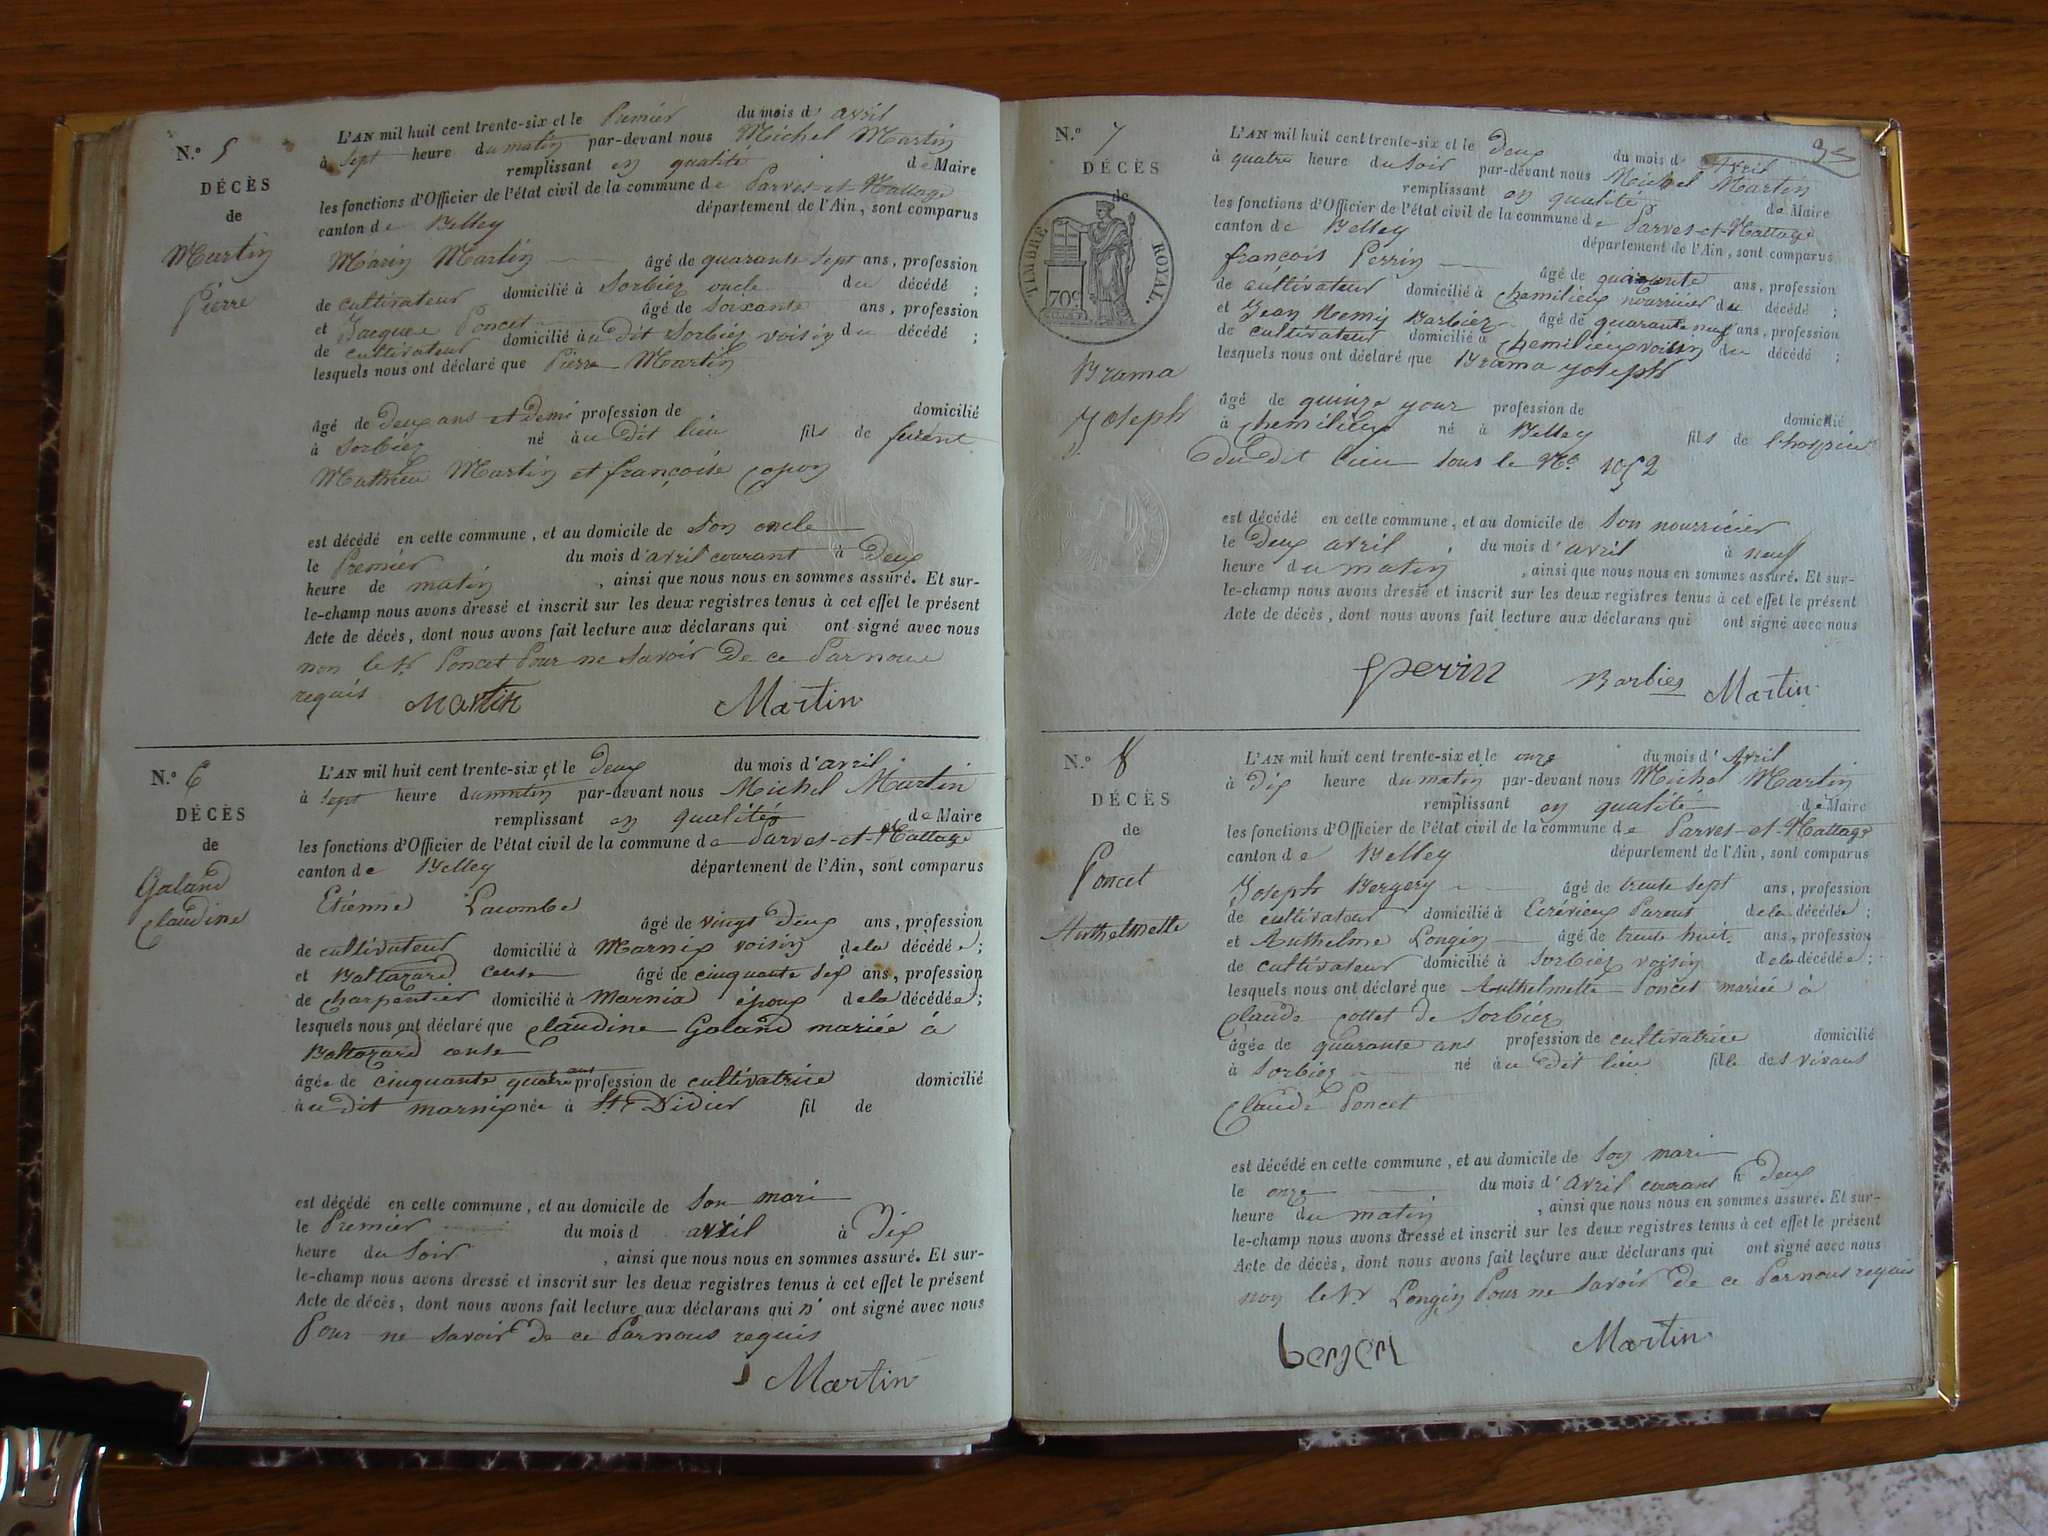 N.º 5
DÉCÈS
de
Martin
Pierre
L'AN mil huit cent trente-six et le Premiér du mois d' avril
à sept heure du matin par-devant nous Michel Martin
remplissant en qualité de Maire
les fonctions d'Officier de l'état civil de la commune de Parves-et-Nattage
canton de Belley département de l'Ain, sont comparus
Marin Martin âgé de quarante sept ans, profession
de cultivateur domicilié à Sorbiez oncle du décédé ;
et Jacques Poncet âgé de soixante ans, profession
de cultivateur domicilié àu dit Sorbiez voisin du décédé ;
lesquels nous ont déclaré que Pierre Martin
âgé de Deux ans et demi profession de domicilié
à Sorbiez né àu dit lieu fils de furent
Mathieu Martin et françoise copon
est décédé en cette commune, et au domicile de son oncle
le Premiér du mois d'avril courant à Deux
heure de matin , ainsi que nous nous en sommes assuré. Et sur-
le-champ nous avons dressé et inscrit sur les deux registres tenus à cet effet le présent
Acte de décès, dont nous avons fait lecture aux déclarans qui ont signé avec nous
non le Sr Poncet Pour ne savoir De ce Par nous
requis Martin Martin
N.º 6
DÉCÈS
de
Galand
Claudine
L'AN mil huit cent trente-six et le deux du mois d'avril
à sept heure du matin par-devant nous Michel Martin
remplissant en qualité de Maire
les fonctions d'Officier de l'état civil de la commune de Parves-et-Nattage
canton de Belley département de l'Ain, sont comparus
Etiénne Lacombe
âgé de vingt deux ans, profession
de cultivateur domicilié à Marnix voisin dela décédée;
et Baltazard âgé de cinquante six ans, profession
de charpentier domicilié à Marnix époux dela décédée;
lesquels nous ont déclaré que Claudine Galand mariée à
Baltazard
âgée de cinquante quatre ans profession de cultivatrice domicilié
àu dit marnix née à St Didier fil de
est décédé en cette commune, et au domicile de son mari
le Premier du mois d avril à Dix
heure du Soir , ainsi que nous nous en sommes assuré. Et sur-
le-champ nous avons dressé et inscrit sur les deux registres tenus à cet effet le présent
Acte de décès, dont nous avons fait lecture aux déclarans qui n' ont signé avec nous
Pour ne savoir De ce Par nous requis
Martin
35
N.º 7
DÉCÈS
de
TIMBRE ROYAL.
70c
Brama
Joseph
L'AN mil huit cent trente-six et le Deux du mois d Avril
à quatre heure du Soir par-devant nous Michel Martin
remplissant en qualité de Maire
les fonctions d'Officier de l'état civil de la commune de Parves-et-Nattage
canton de Belley département de l'Ain, sont comparus
françois Perrin âgé de quarante ans, profession
de cultivateur domicilié à Chemilieu nourricier du décédé ;
et Jean Remy Barbier âgé de quarante neuf ans, profession
de cultivateur domicilié à chemilieu voisin du décédé ;
lesquels nous ont déclaré que Brama Joseph
âgé de quinze jour profession de domicilié
à Chemilieu né à Belley fils de l'hospice
du Dit lieu sous le No 1052
est décédé en cette commune, et au domicile de son nourricier
le Deux avril du mois d'avril à neuf
heure du matin , ainsi que nous nous en sommes assuré. Et sur-
le-champ nous avons dressé et inscrit sur les deux registres tenus à cet effet le présent
Acte de décès, dont nous avons fait lecture aux déclarans qui ont signé avec nous
perrin Barbier Martin
N.º 8
DÉCÈS
de
Poncet
Anthelmette
L'AN mil huit cent trente-six et le onze du mois d' Avril
à Dix heure du matin par-devant nous Michel Martin
remplissant en qualité de Maire
les fonctions d'Officier de l'état civil de la commune de Parves-et-Nattage
canton de Belley département de l'Ain, sont comparus
Joseph Bergery âgé de trente sept ans, profession
de cultivateur domicilié à Parent dela décédée;
et Anthelme Longin âgé de trente huit ans, profession
de cultivateur domicilié à Sorbiez voisin dela décédée;
lesquels nous ont déclaré que Anthelmette Poncet mariée à
Claude cottet de Sorbiez
âgée de quarante ans profession de cultivatrice domicilié
à Sorbiez né àu dit lieu fille des vivans
Claude Poncet
est décédé en cette commune, et au domicile de son mari
le onze du mois d' Avril courant à Deux
heure du matin , ainsi que nous nous en sommes assuré. Et sur-
le-champ nous avons dressé et inscrit sur les deux registres tenus à cet effet le présent
Acte de décès, dont nous avons fait lecture aux déclarans qui ont signé avec nous
non le Sr Longin Pour ne savoir De ce Par nous requis
Martin